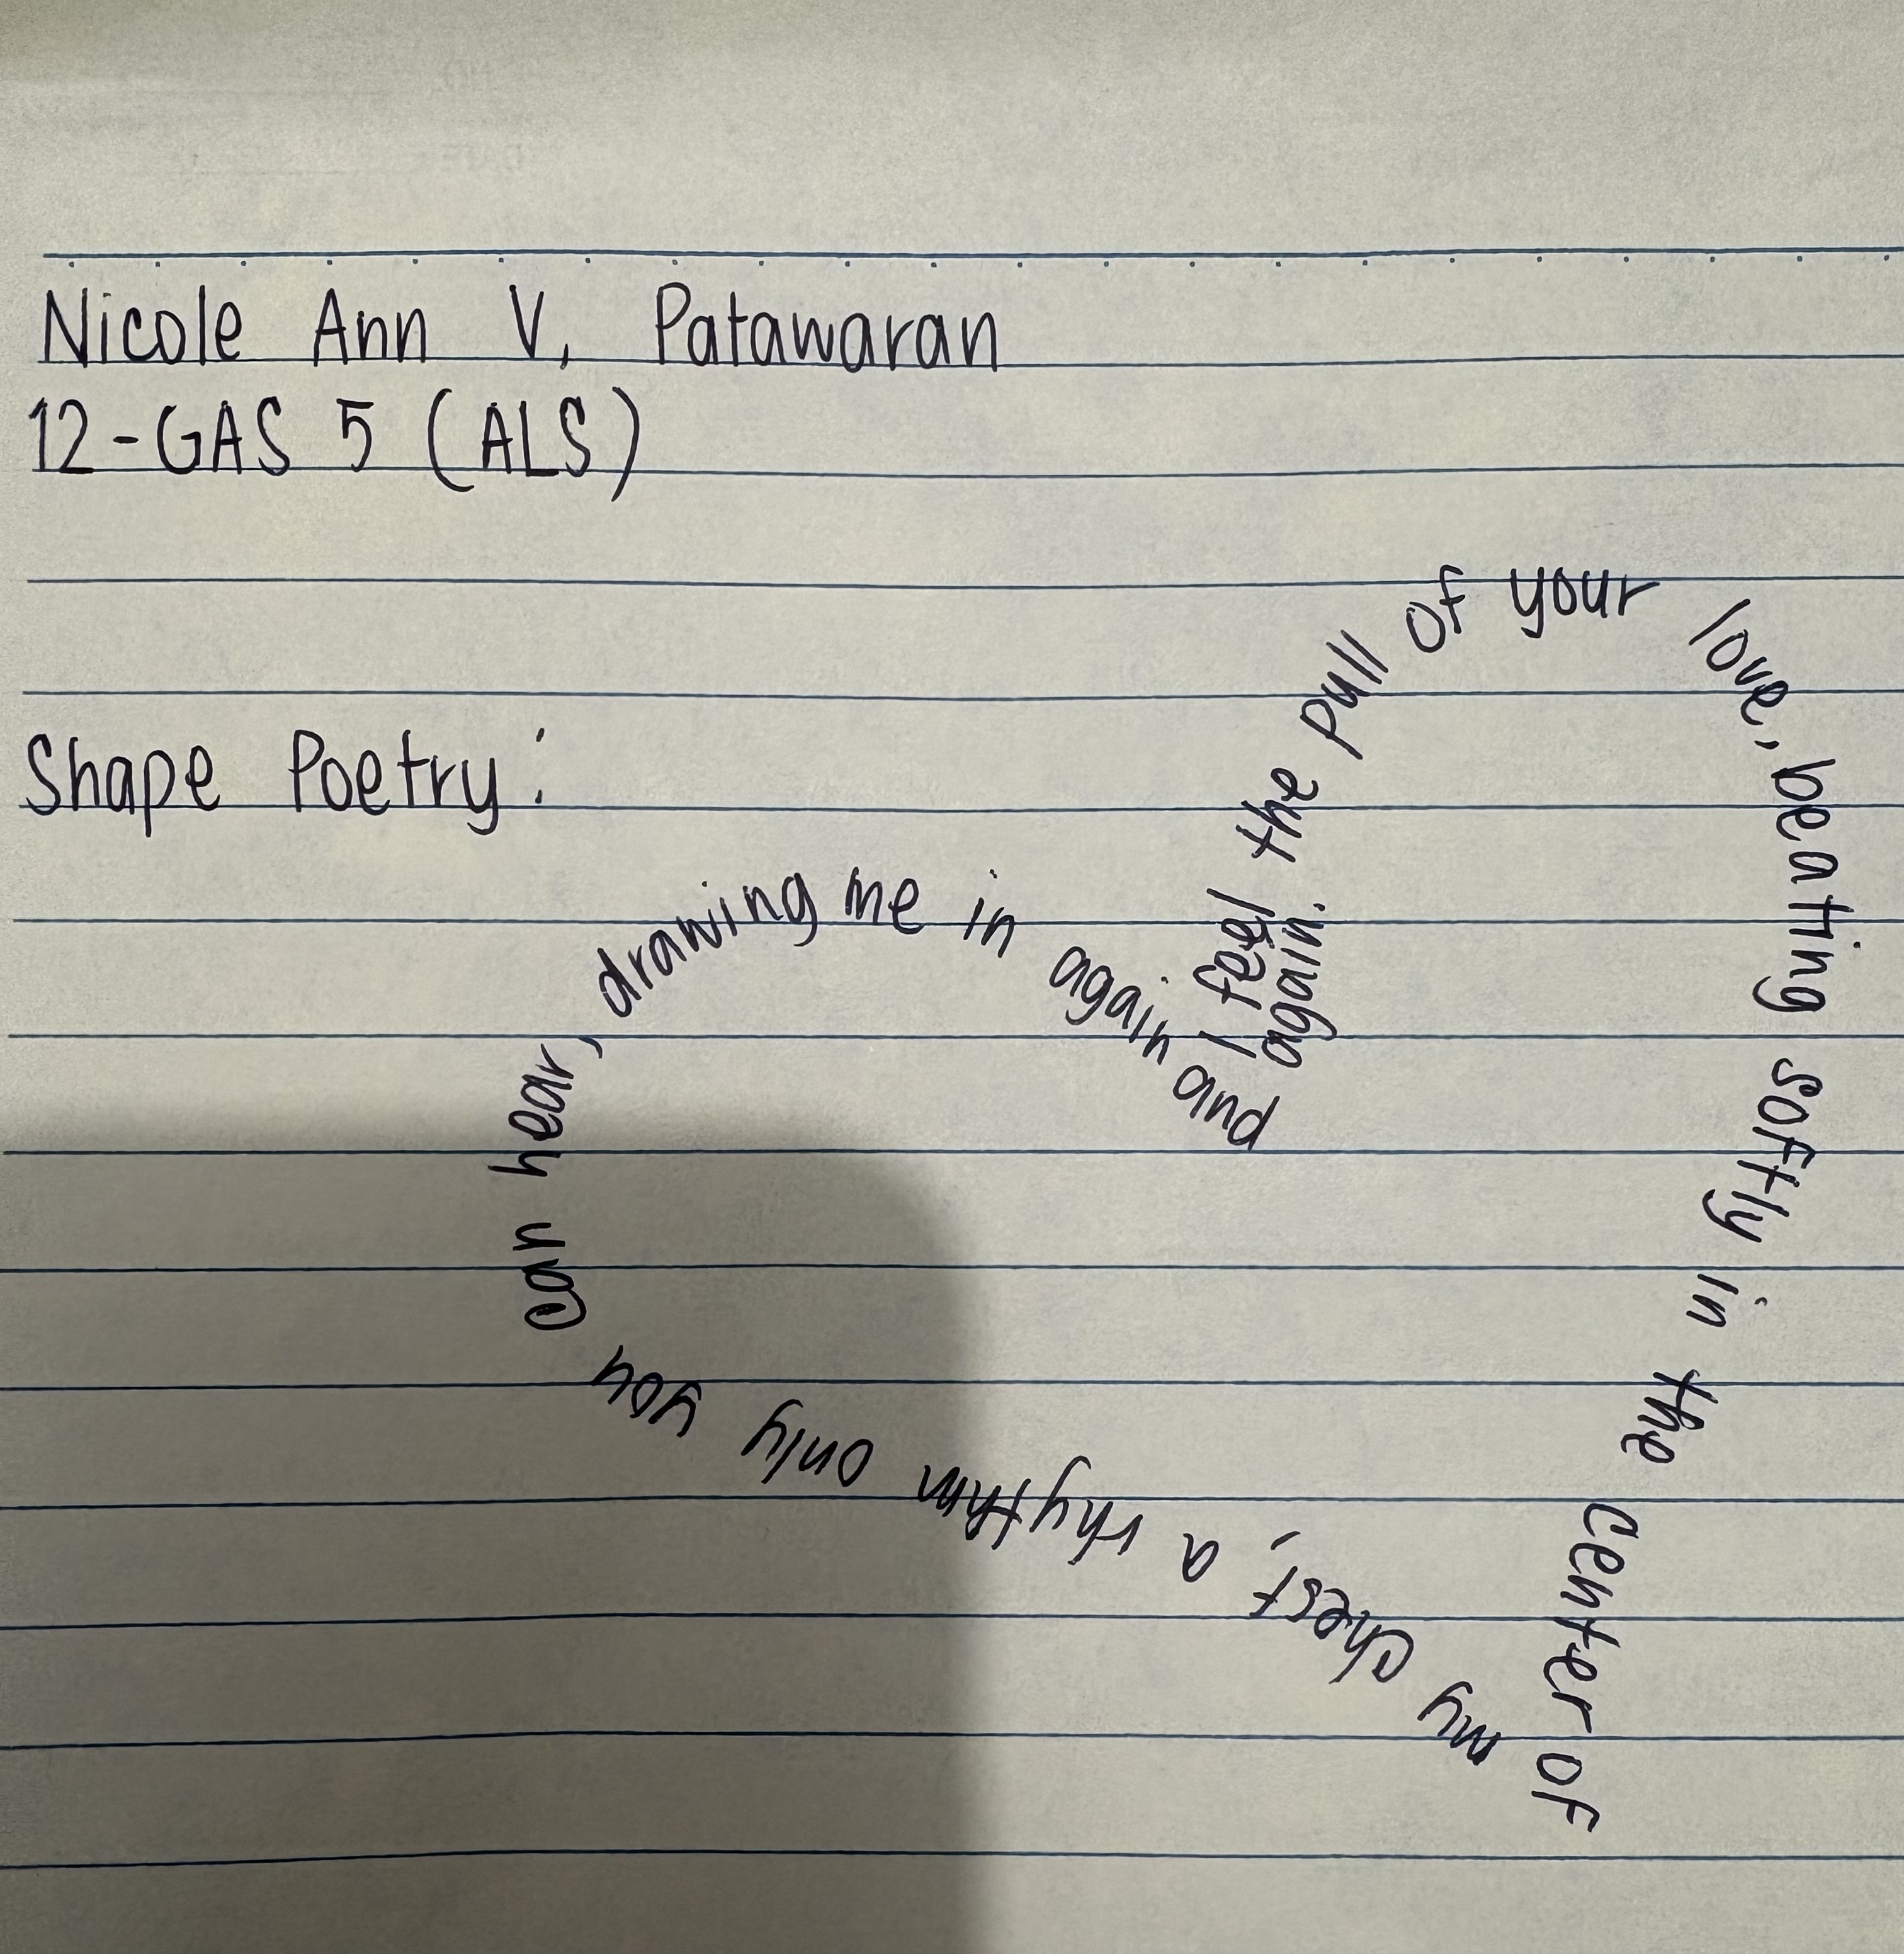 Nicole Ann V, Patawaran
12-GAS 5 (ALS)
Shape Poetry:
I feel the pull of your love, beating softly in the center of my chest, a rhythm only you can hear, drawing me in again and again.